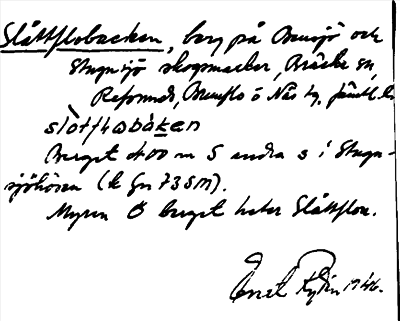 Slåttflobacken, berg på Bensjö och
Stugusjö skogsmarker, Bräcke sn,
Refsunds, Brunflo o Näs tg, Jämtl. l.
slòtflobàken
Berget 400 m S andra s i Stugu-
sjöhösen (k gn 73 SM).
Myren Ö berget heter Slåttflon.
1946.